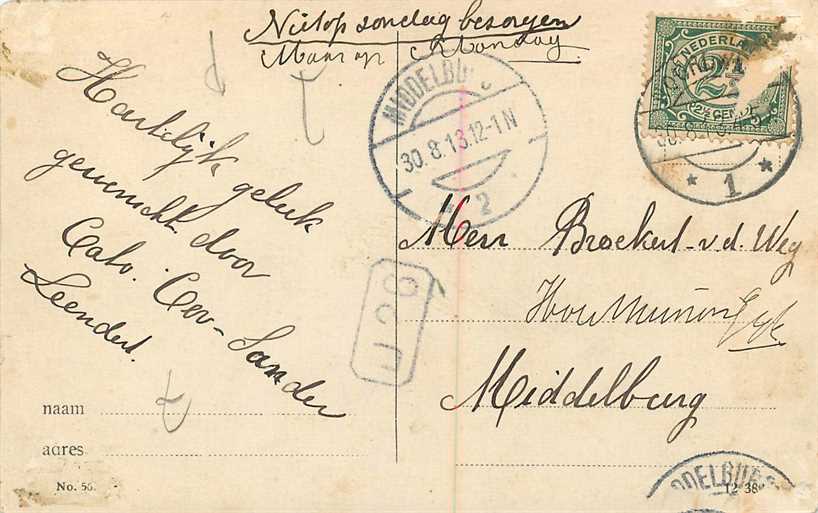 Niet op sondag besorgen
Maar op Maandag
Hartelijk geluk
gewenscht door
Cato. Cor - Sander
Leendert.
naam
adres
No. 56.
NEDERLAND
2½
2½ CENT
MIDDELBURG
30.8.13.12-1N
2
30.8
* 1 *
Merr Broekert - v. d. Weg
Middelburg
MIDDELBURG
12 38